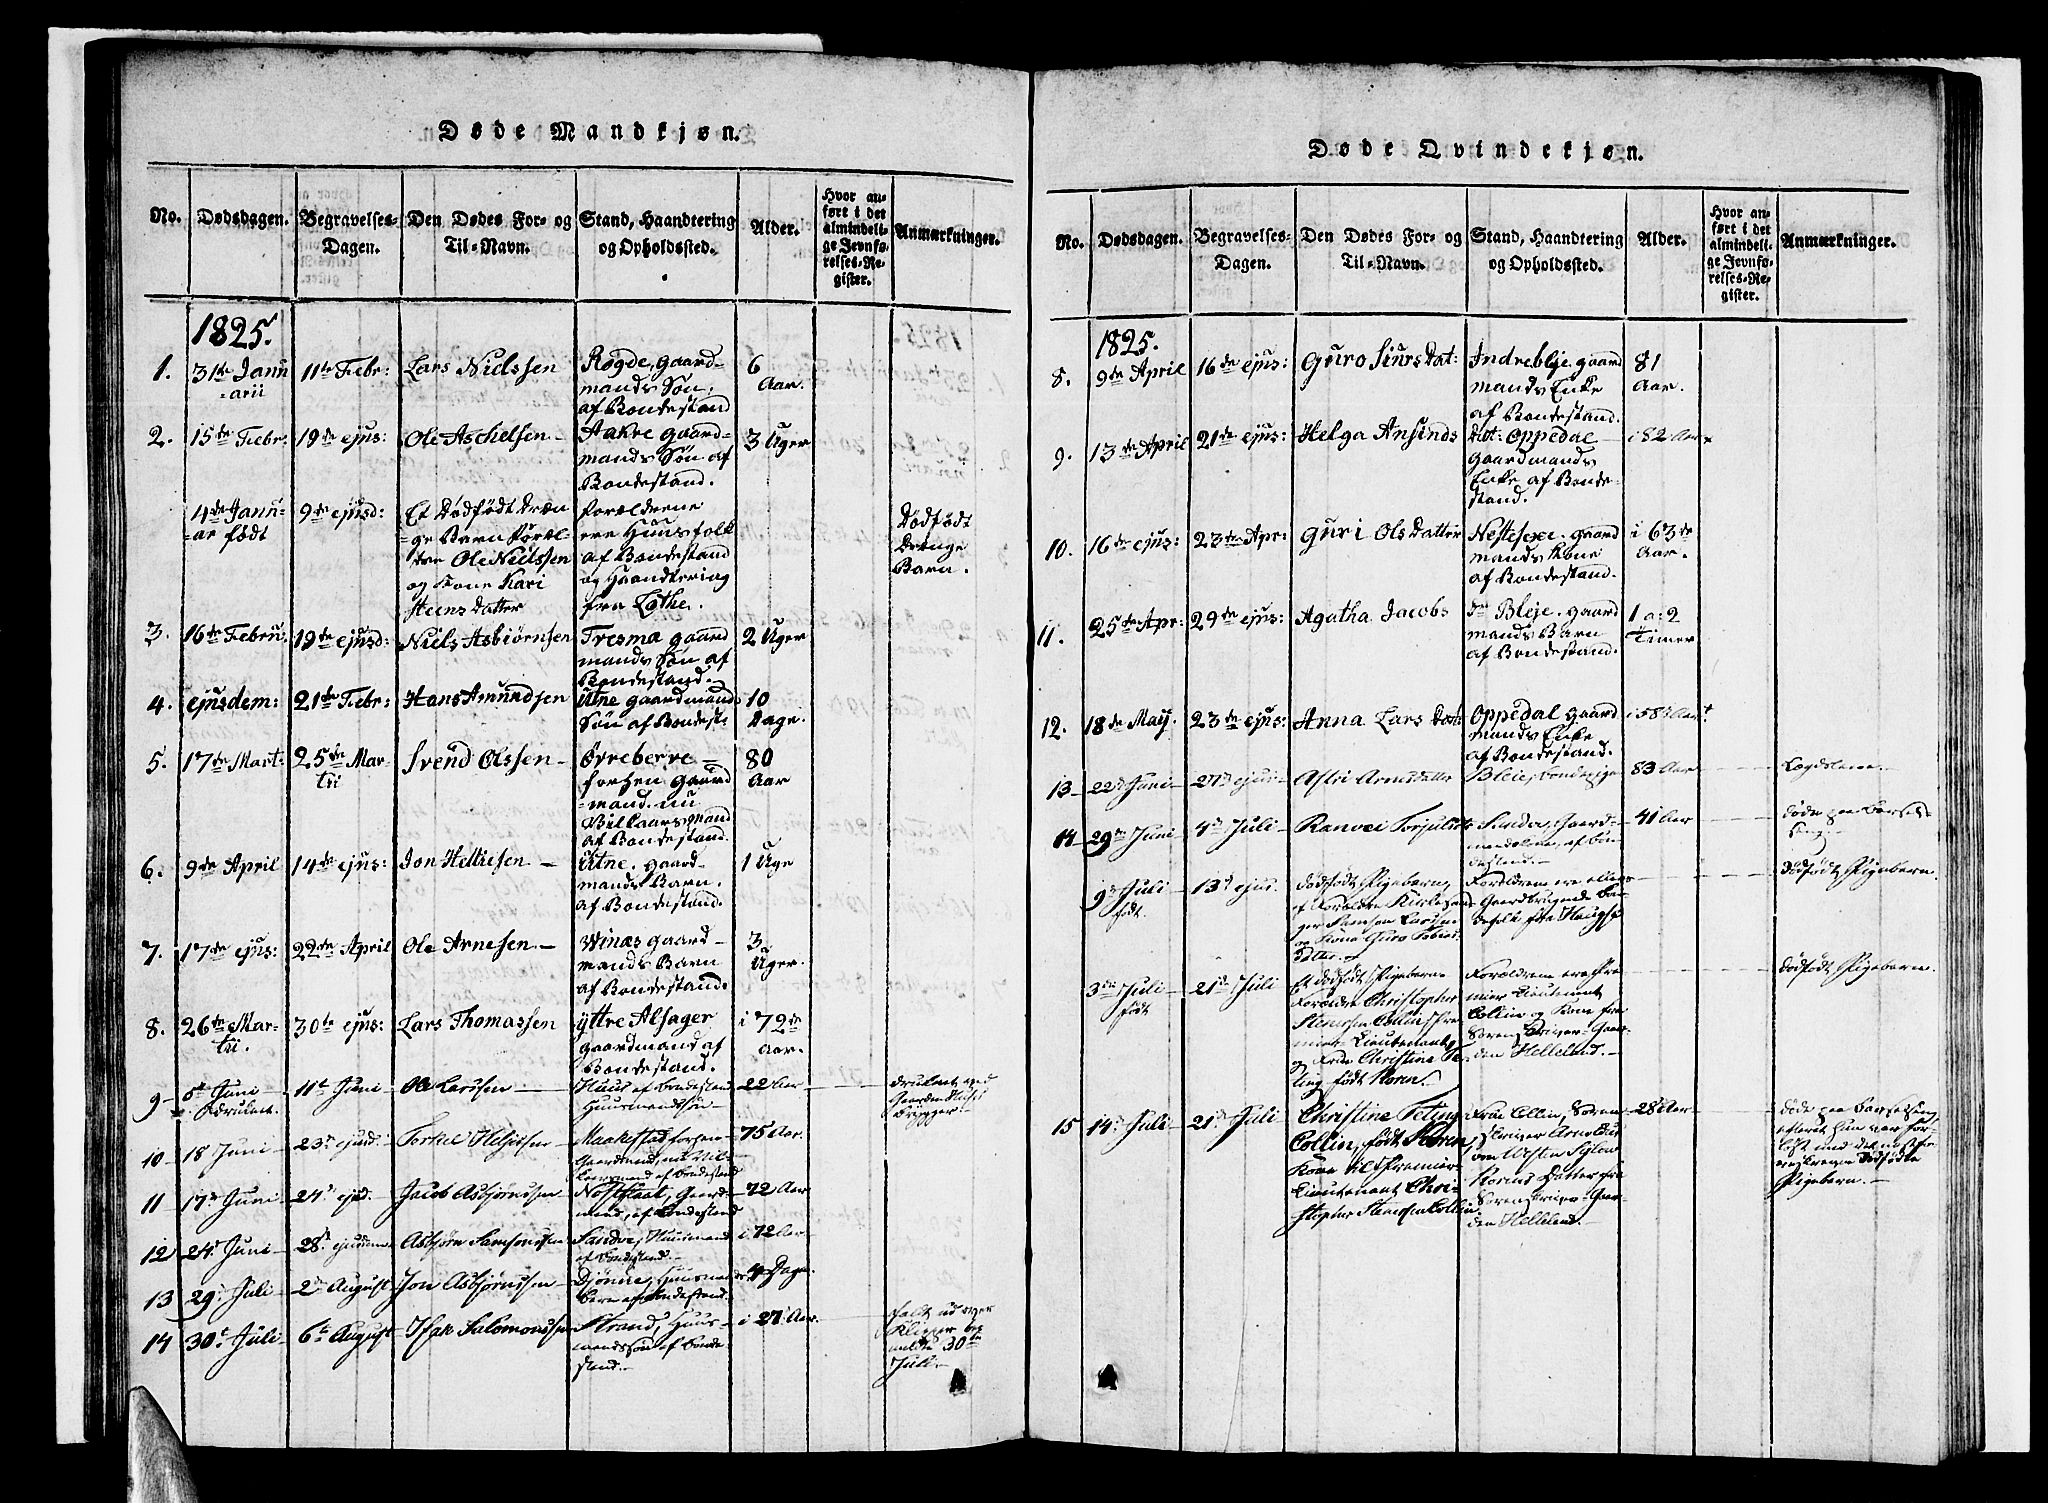 Døde Mandkjøn.
No.
Dødsdagen.
Begravelses-
Dagen.
Den Dødes For- og
Til-Navn.
Stand, Haandtering
og Opholdssted.
Alder.
Hvor an-
ført i det
almindeli-
ge Jevnfø-
relses-Re-
gister.
Anmærkninger.
1825.
1.
31te Janu
=arii
11te Febr:
Lars Nielssen
Røgde, gaard-
mands Søn.
af Bondestand
6
Aar.
2.
15de Febr:
19de ejus:
Ole Aschelsen
Aakre gaard-
mands Søn af
Bondestand.
3 Uger
4de Janu-
=ar født
9de ejusd:
Et Dødfødt Dræn
=ge Barn
Ole Nielssen
og Kone Kari
Steens datter
forælderne
ere Huusfolk
af Bondestand
og Haandtering
fra Lothe.
Dødfødt
Drenge
Barn.
3.
16de Febru:
19de ejusd:
Niels Asbiørnsen
Tresma gaard
mands Søn af
Bondestand.
2 Uger
4.
ejusdem:
21de Febr:
Hans Amundsen
Utne gaardmands
Søn af Bondest:
10
Dage.
5.
17de Mart:
25de Mar-
tii
Svend Olssen
Øvreberre
forhen gaard
=mand. nu
Villaarsmand
af Bondestand.
80
Aar
6.
9de April
14de ejus:
Jon Helliesen
Utne. gaard-
mands Barn.
af Bondestand.
1 Uge
7.
17de ejus:
22de April
Ole Arnesen.
Winæs gaard-
mands Barn
af Bondestand.
3
Uger.
8.
26de Mar-
tii.
30te ejus:
Lars Thomassen
yttre Alsager
gaardmand af
Bondestand.
i 72de
Aar.
9
5te Juni
druknet.
11te Juni
Ole Larssen
Huus af Bondestand
Huusmandssøn
22 Aar
druknet ved
10
18 Juni
23de ejusd.
Torkel Heljesen
Maakestad forhen
Gaardmand, nu Vil-
laarsmand af Bondestand
75 Aar.
11
17de Juni
24de ejsd.
Jacob Asbjørnssen
Nostflaat, Gaard-
mand, af Bondestand
72 Aar
12
24de Juni
28de ejusdem
Asbjørn Samsonssen
Sandve, Huusmand
af Bondestand.
i 72 Aar
13
29de Juli
2de August
Jon Asbjørnssen
Djønne, Huusmands
barn af Bondestand.
4 Dage.
14
30te Juli
6te August
Isak Salomonssen
Strand, Huus-
mandssøn af Bonde-
stand.
i 27de Aar
faldt ud over
Klipper be-
meldte 30te
Juli.
Døde Qvindekjøn.
No.
Dødsdagen.
Begravelses-
Dagen.
Den Dødes For- og
Til-Navn.
Stand, Haandtering
og Opholdssted.
Alder.
Hvor an-
ført i det
almindeli-
ge Jevnfø-
relses-Re-
gister.
Anmærkninger.
1825.
8.
9de April
16de ejus:
Guro Siursdat:
Indreblje. gaard
mands Enke
af Bondestand.
81
Aar.
9.
13de April
21de ejus:
Helga Ansinds
dat: Oppedal
gaardmands
Enke af Bonde-
stand.
i 82 Aar
10.
16de ejus:
23de Apr:
Guri Olsdatter
Nestesexe. gaard
mands Kone
af Bondestand.
i 63de
Aar.
11.
25de Apr:
29de ejus:
Agatha Jacobs
dat Bleje. gaard
mands Barn
af Bondestand.
1 a: 2
Timer
12.
18de Maij.
23de ejus:
Anna Lars dat:
Oppedal gaard
mands Enke
af Bondestand.
i 58de Aar
13
22de Juni
27de ejus
Astri Arnsdatter
Bleie,
83 Aar
Lægdslem.
14
29de Juni
4de Juli
Ranvei Torjulsd
Sandve, Gaard-
mandskone, af Bon-
destand.
41 Aar
Døde paa Barsel-
seng.
9de Juli
født.
13de ejus.
dødfødt Pigebarn,
af Forældre
Samson Larssen
og Kone Guro Tobias-
datter.
Forældrene ere
Gaardbrugende
Dødfødt Pigebarn.
3de Juli
født
21de Juli
Et dødfødt Pigebarn
Forældre Christopher
Stenersen Collin, Pre-
mier-Lieutenant,
og Frue Christine Te-
ting født Koren.
Forældrene ere Pre-
mier Lieutenant
Collin og Kone fra
Sorenskriver-Gaar-
den Helleland.
dødfødt Pigebarn.
15
14de Juli
21de Juli
Christine Teting
Collin, født Koren,
Kone til Premier-
Lieutenant Chri-
stopher Stenersen Collin.
Frue Collin, Soren-
skriver Arnoldus
von Westen Sylow
Korens Datter fra
Sorenskriver-Gaar-
den Helleland.
28 Aar
døde paa Barselseng,
efteret hun var for-
løst med det næstfor-
anskrevne Dødfødte
Pigebarn.